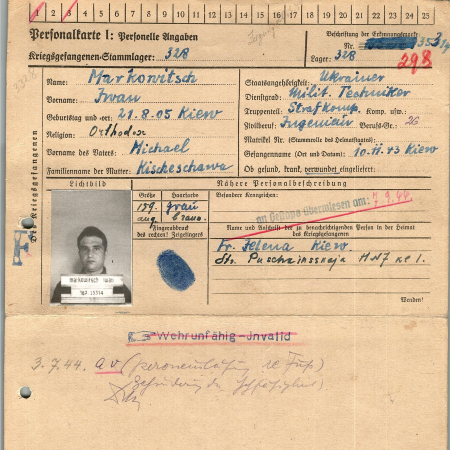 1 2 3 4 5 6 7 8 9 10 11 12 13 14 15 16 17 18 19 20 21 22 23 24 25
Personalkarte I: Personelle Angaben
Kriegsgefangenen-Stammlager: 328
Beschriftung der Erkennungsmarke
Nr.
Lager: 328
298
Name: Markowitsch
Vorname: Iwan
Geburtstag und -ort: 21.8.05 Kiew
Religion: Orthodox
Vorname des Vaters: Michael
Familienname der Mutter: Kischeschawa
Staatsangehörigkeit: Ukrainer
Dienstgrad: Milit. Techniker
Truppenteil: Strafkomp. Komp. usw.:
Zivilberuf: Ingenieur Berufs-Gr.: 26
Matrikel Nr. (Stammrolle des Heimatstaates):
Gefangennahme (Ort und Datum): 10.11.43 Kiew
Ob gesund, krank, verwundet eingeliefert:
Des Kriegsgefangenen
Lichtbild
Größe
Haarfarbe
159. grau
aug. braun.
Fingerabdruck
des rechten! Zeigefingers
Nähere Personalbeschreibung
Besondere Kennzeichen:
an Gestapo überwiesen am: 7.9.44
Name und Anschrift der zu benachrichtigenden Person in der Heimat
des Kriegsgefangenen
Fr. Jelena Kiew.
Str. Puschzinsskaja
Wenden!
markowitsch iwan
Wehrunfähig-Invalid
3.7.44. av